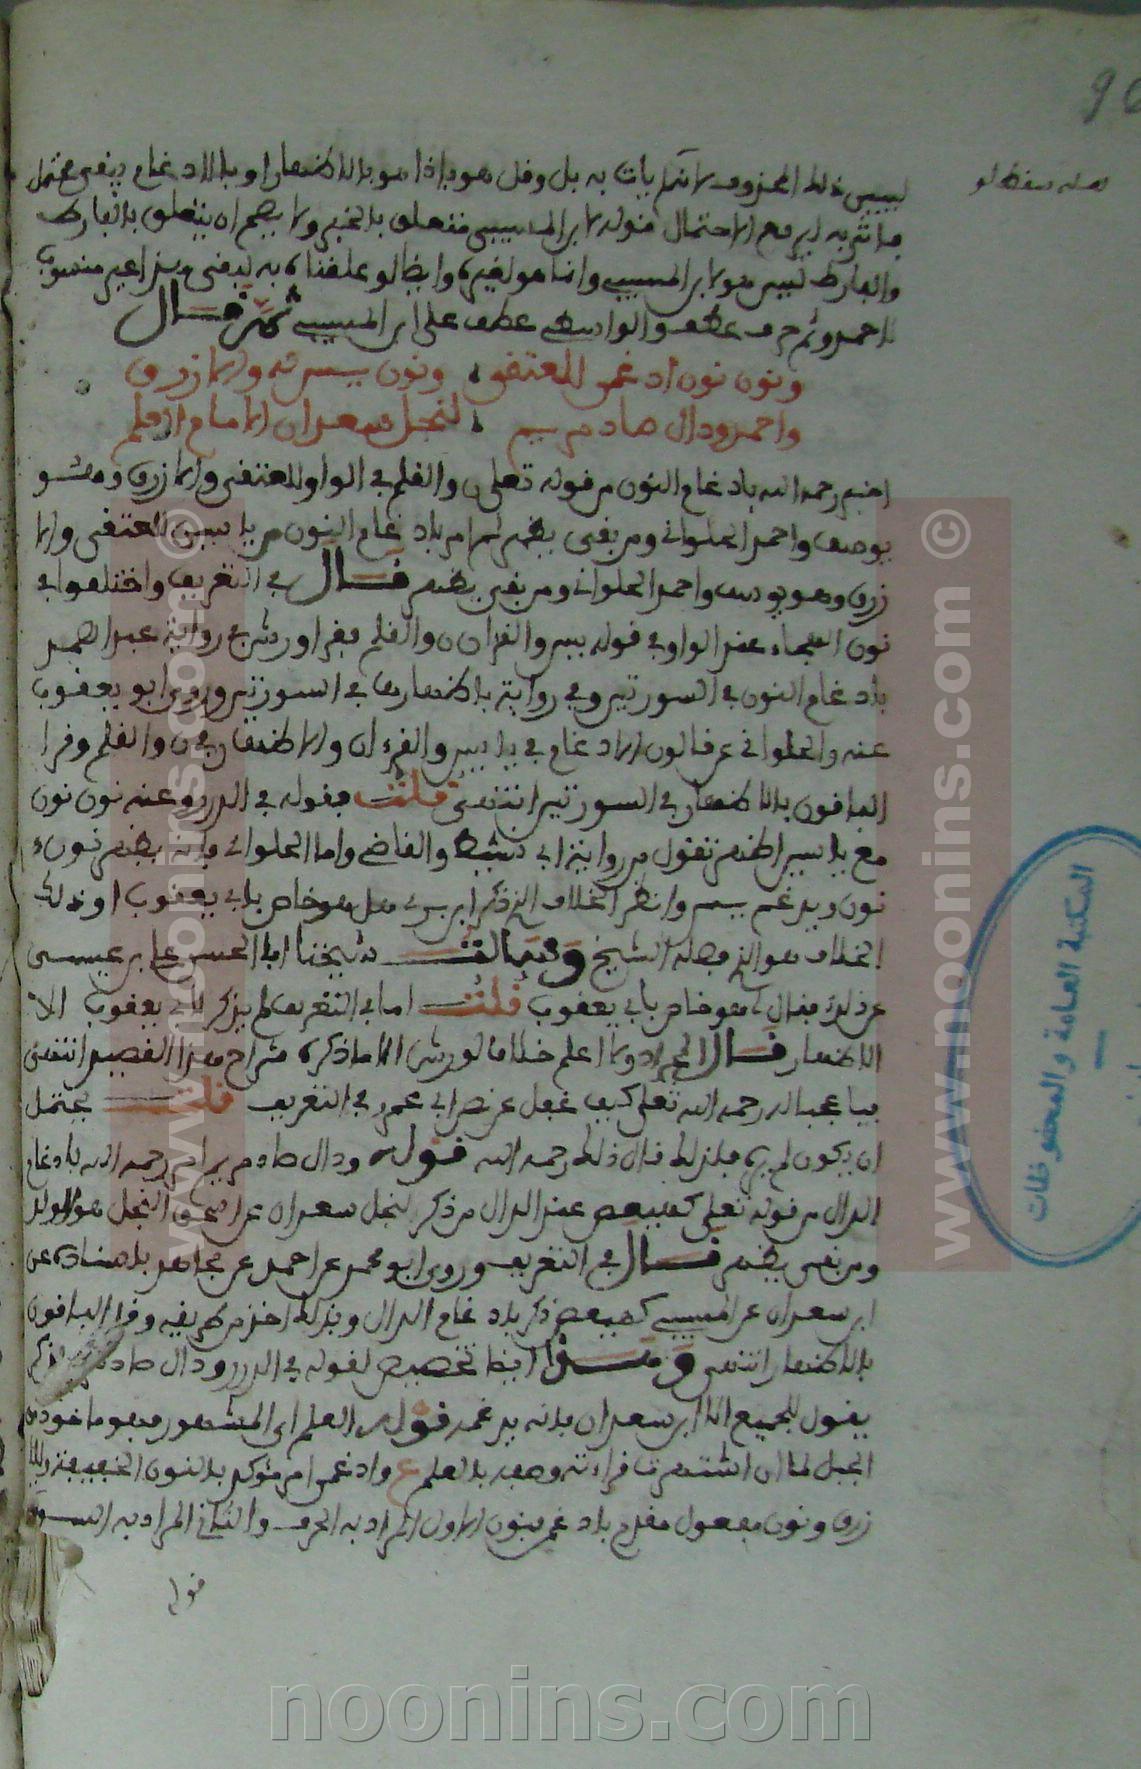 96
ليبين ذلك المحذوف لانه لم يات به بل وقل هو باذا هو بالاظهار او بالادغام فبقي محتمل
ما تقر به ليرفع الاحتمال قوله لابن المسيبي متعلق بالخبر ولا يصح ان يتعلق بالفارط
والفارط ليس هو لابن المسيبي وانما هو لغيره وايضا لو علقناه به لبقي هذا غير منسوب
لاحمد وثم حرف عطف والواسطي عطف على ابن المسيبي ثم قال
ونون نون ادغمن للعتقي ونون يسن ثم والازرق
واحمد ودال صاد مريم لنجل سعدان الامام العلم
اخبر رحمه الله بادغام النون من قوله تعلى ن والقلم في الواو للعتقي والازرق وهو
يوسف واحمد الحلواني ومن بقي يظهر ثم امر بادغام النون من يا يسن للعتقي والا
زرق وهو يوسف واحمد الحلواني ومن بقي يظهر قال في التعريف واختلفوا في
نون الهجاء عند الواو في قوله يسن والقرءان ون والقلم فقرا ورش في رواية عبد الصمد
بادغام النون في السورتين وفي رواية باظهارها في السورتين وروى ابو يعقوب
عنه والحلواني عن قالون الادغام في يا يسن والقرءان والاظهار في ن والقلم وقرا
الباقون بالاظهار في السورتين انتهى قلت فقوله في الدرر وعنه نون نون
مع يا يسن اظهر تقول من رواية ابي نشيط والقاضي واما الحلواني فانه يظهر نون
نون ويدغم يسن وانظر الخلاف الذي ذكر ابن بري هل هو خاص بابي يعقوب او ذلك
الخلاف هو الذي فصله الشيخ وسالت شيخنا ابا الحسن علي بن عيسى
عن ذلك فقال لي هو خاص بابي يعقوب قلت اما في التعريف لم يذكر لابي يعقوب الا
الاظهار قال المجرادي ولا اعلم خلافا لورش الا ما ذكره شراح هذا القصيد انتهى
فيا عجبا له رحمه الله تعلى كيف غفل عن نص ابي عمرو في التعريف قلت يحتمل
ان يكون لم يره فلذلك قال ذلك رحمه الله قوله ودال صاد مريم امر رحمه الله بادغام
الدال من قوله تعلى كهيعص عند الذال من ذكر لنجل سعدان عن اسحاق النجل هو الولد
ومن بقي يظهر قال في التعريف وروى ابو محمد عن احمد عن مجاهد باسناده عن
ابن سعدان عن المسيبي كهيعص ذكر بادغام الدال وبذلك اخذ من طريقه وقرا الباقون
بالاظهار انتهى وهذا ايضا تخصيص لقوله في الدرر ودال صاد
يقول للجميع الا ابن سعدان فانه يدغمه قوله العلم اي المشهور فهو ماخوذ من
الجبل لما ان اشتهرت قراءته وصفه بالعلم ع وادغمن امر مؤكد بالنون الخفيفة والا
زرق ونون مفعول مقدم بادغمن فنون الاول المراد به الحرف والثاني المراد به السورة
قوله
المكتبة العامة والمحفوظات
www.noonins.com ©
www.noonins.com ©
noonins.com